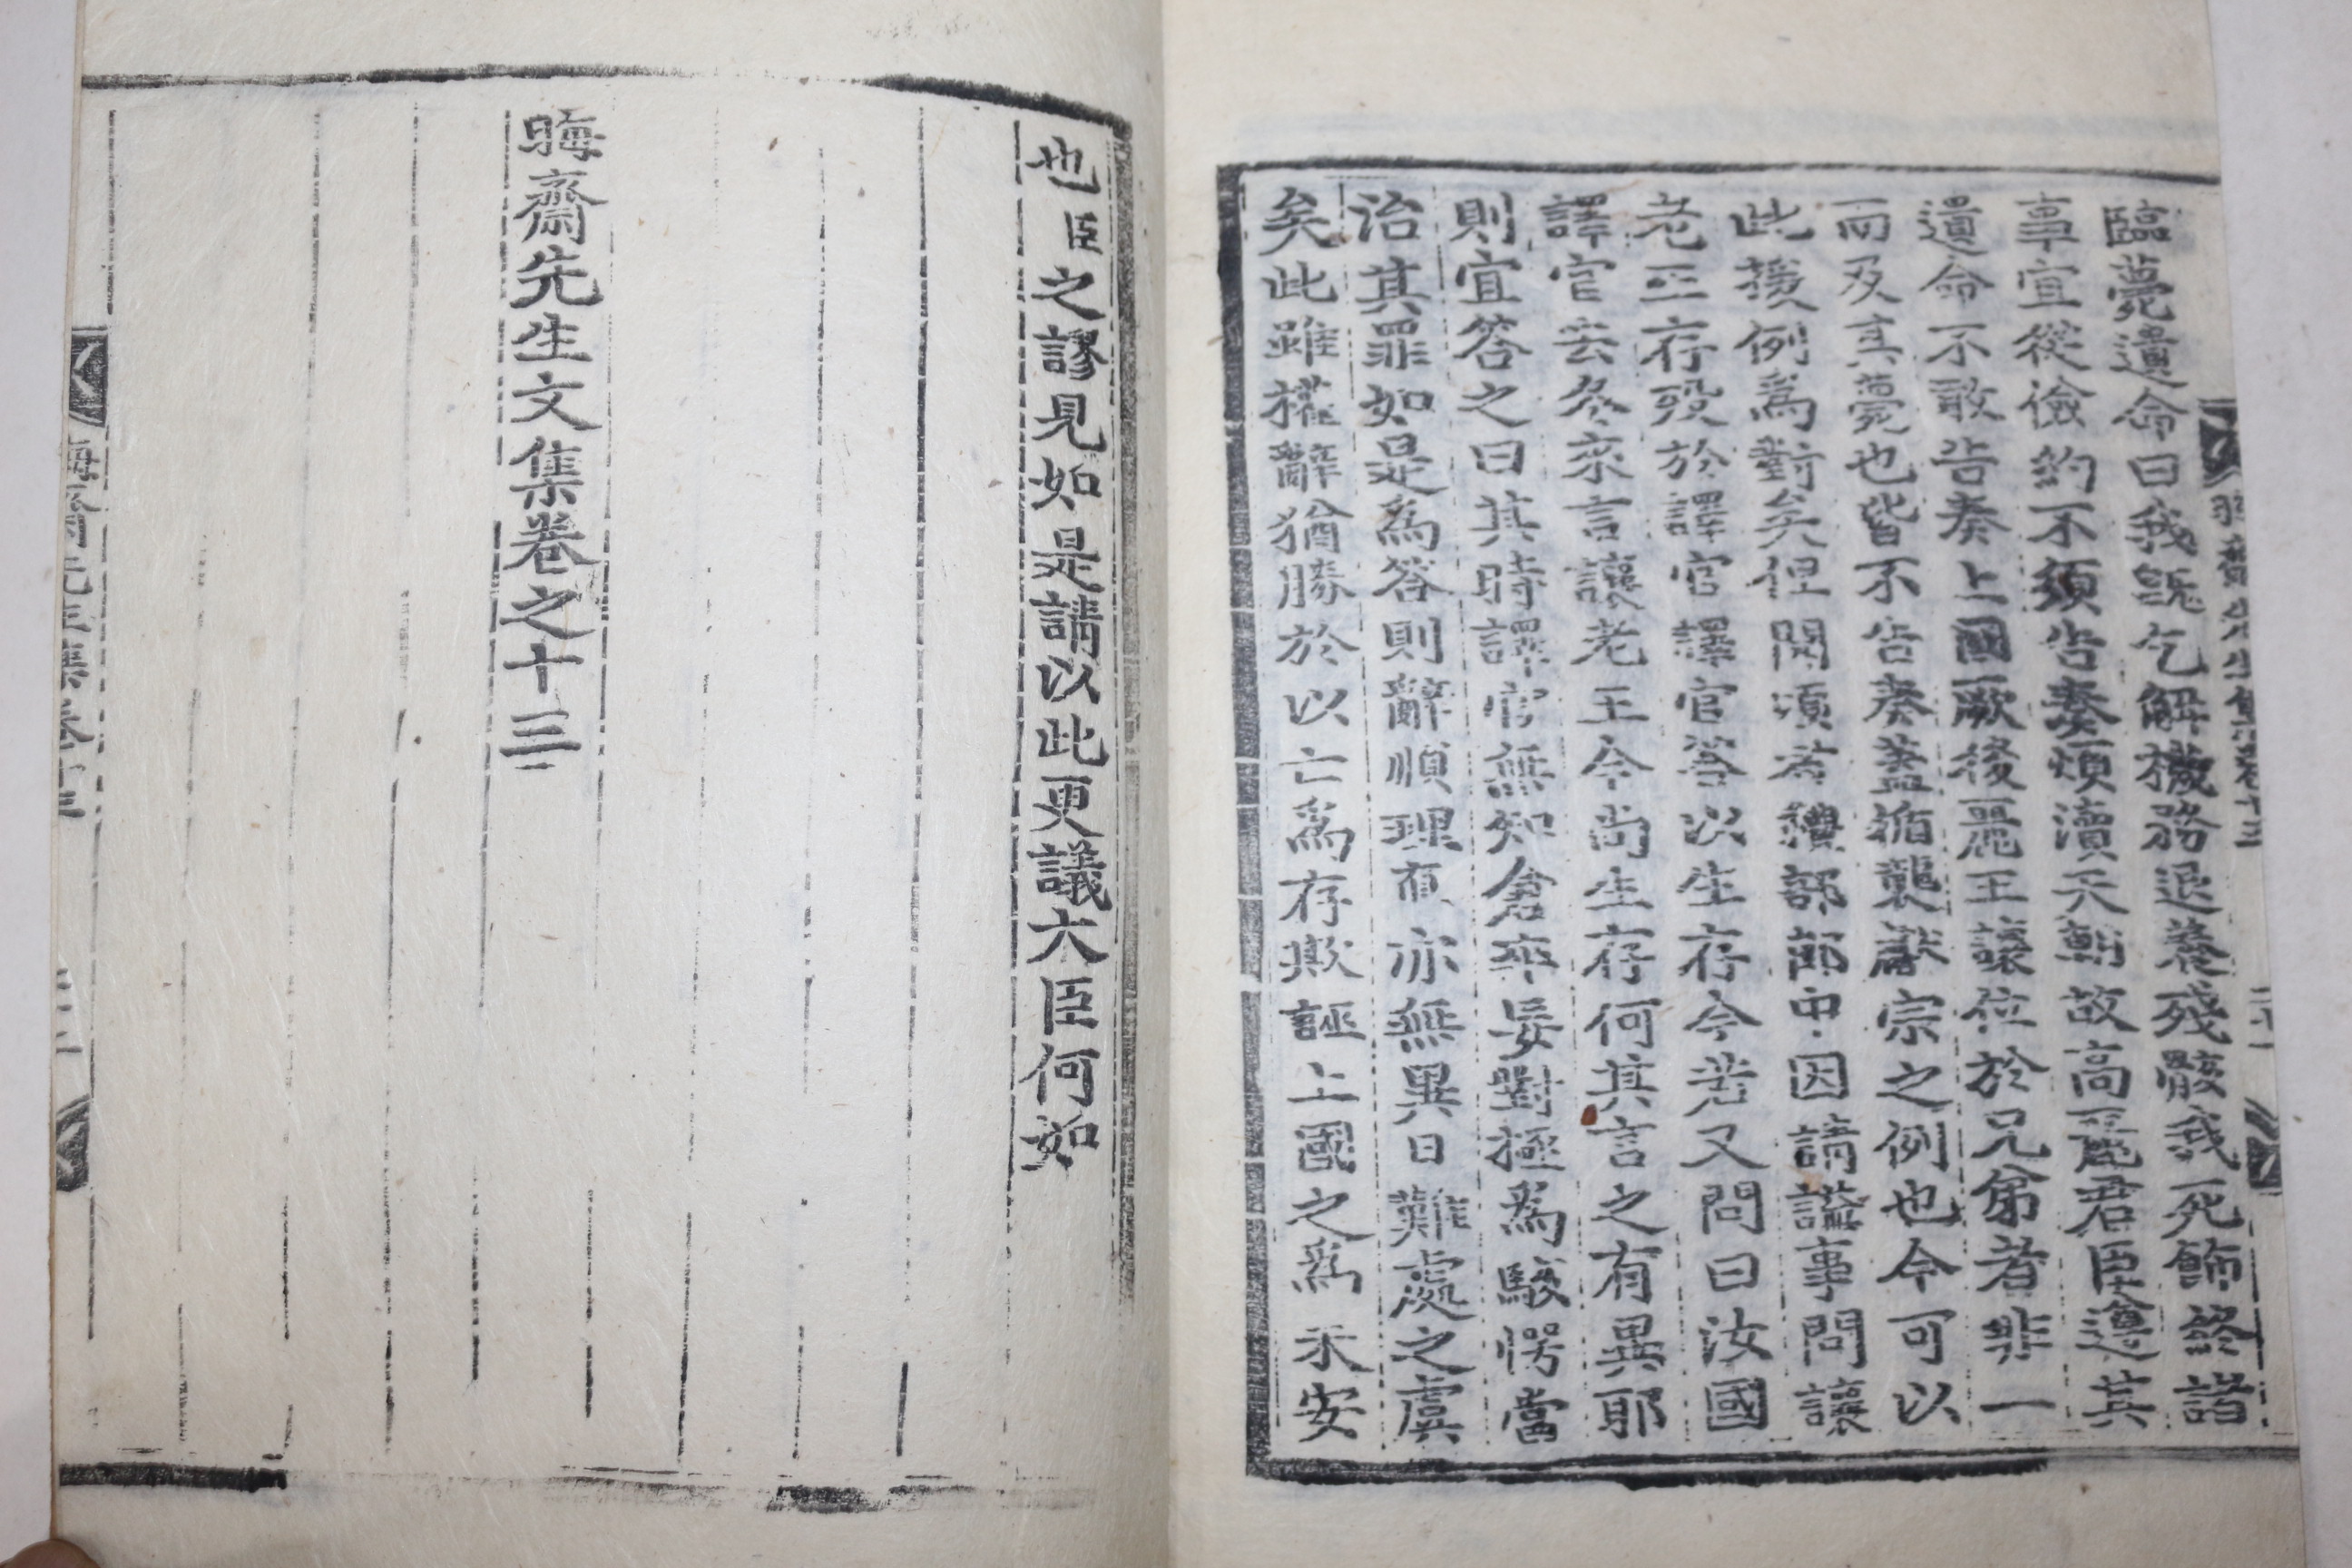 臨薨遺命曰我旣乞解機務退養殘骸我死飾終諸
事宜從儉約不須告奏煩瀆天朝故高麗君臣遵其
遺命不敢告奏上國厥後麗王讓位於兄弟者非一
而及其薨也皆不告奏蓋循襲獻宗之例也今可以
此援例爲對矣但聞頃者禮部郎中因請諡事問讓
老王存歿於譯官譯官答以生存今若又問曰汝國
譯官去冬來言讓老王今尚生存何其言之有異耶
則宜答之曰其時譯官無知倉卒妄對極爲駭愕當
治其罪如是爲答則辭順理直亦無異日難處之虞
矣此雖權辭猶勝於以亡爲存欺誣上國之爲未安
也臣之謬見如是請以此更議大臣何如
晦齋先生文集卷之十三
晦齋先生集卷十三
晦齋先生集卷十三